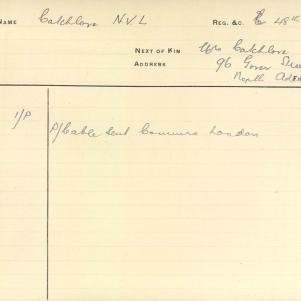 NAME Catchlove N.V.L REG. &C. E 48th
NEXT OF KIN Mrs Catchlove
ADDRESS 96 Gover Stree
North Ade
1/P P/Cable sent Commrs London